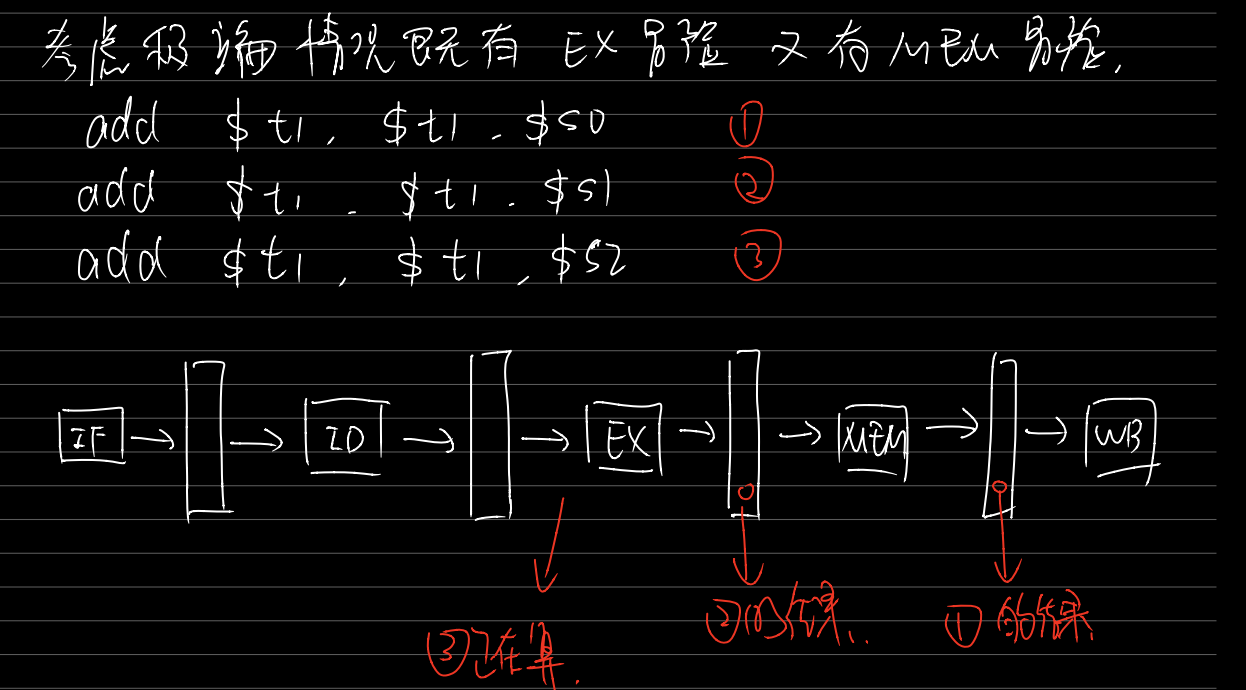 考虑极端情况既有 EX 冒险 又有 MEM 冒险.
add $t1, $t1, $s0 ①
add $t1, $t1, $s1 ②
add $t1, $t1, $s2 ③
IF ID EX MEM WB
③正在算.
②的结果.
①的结果